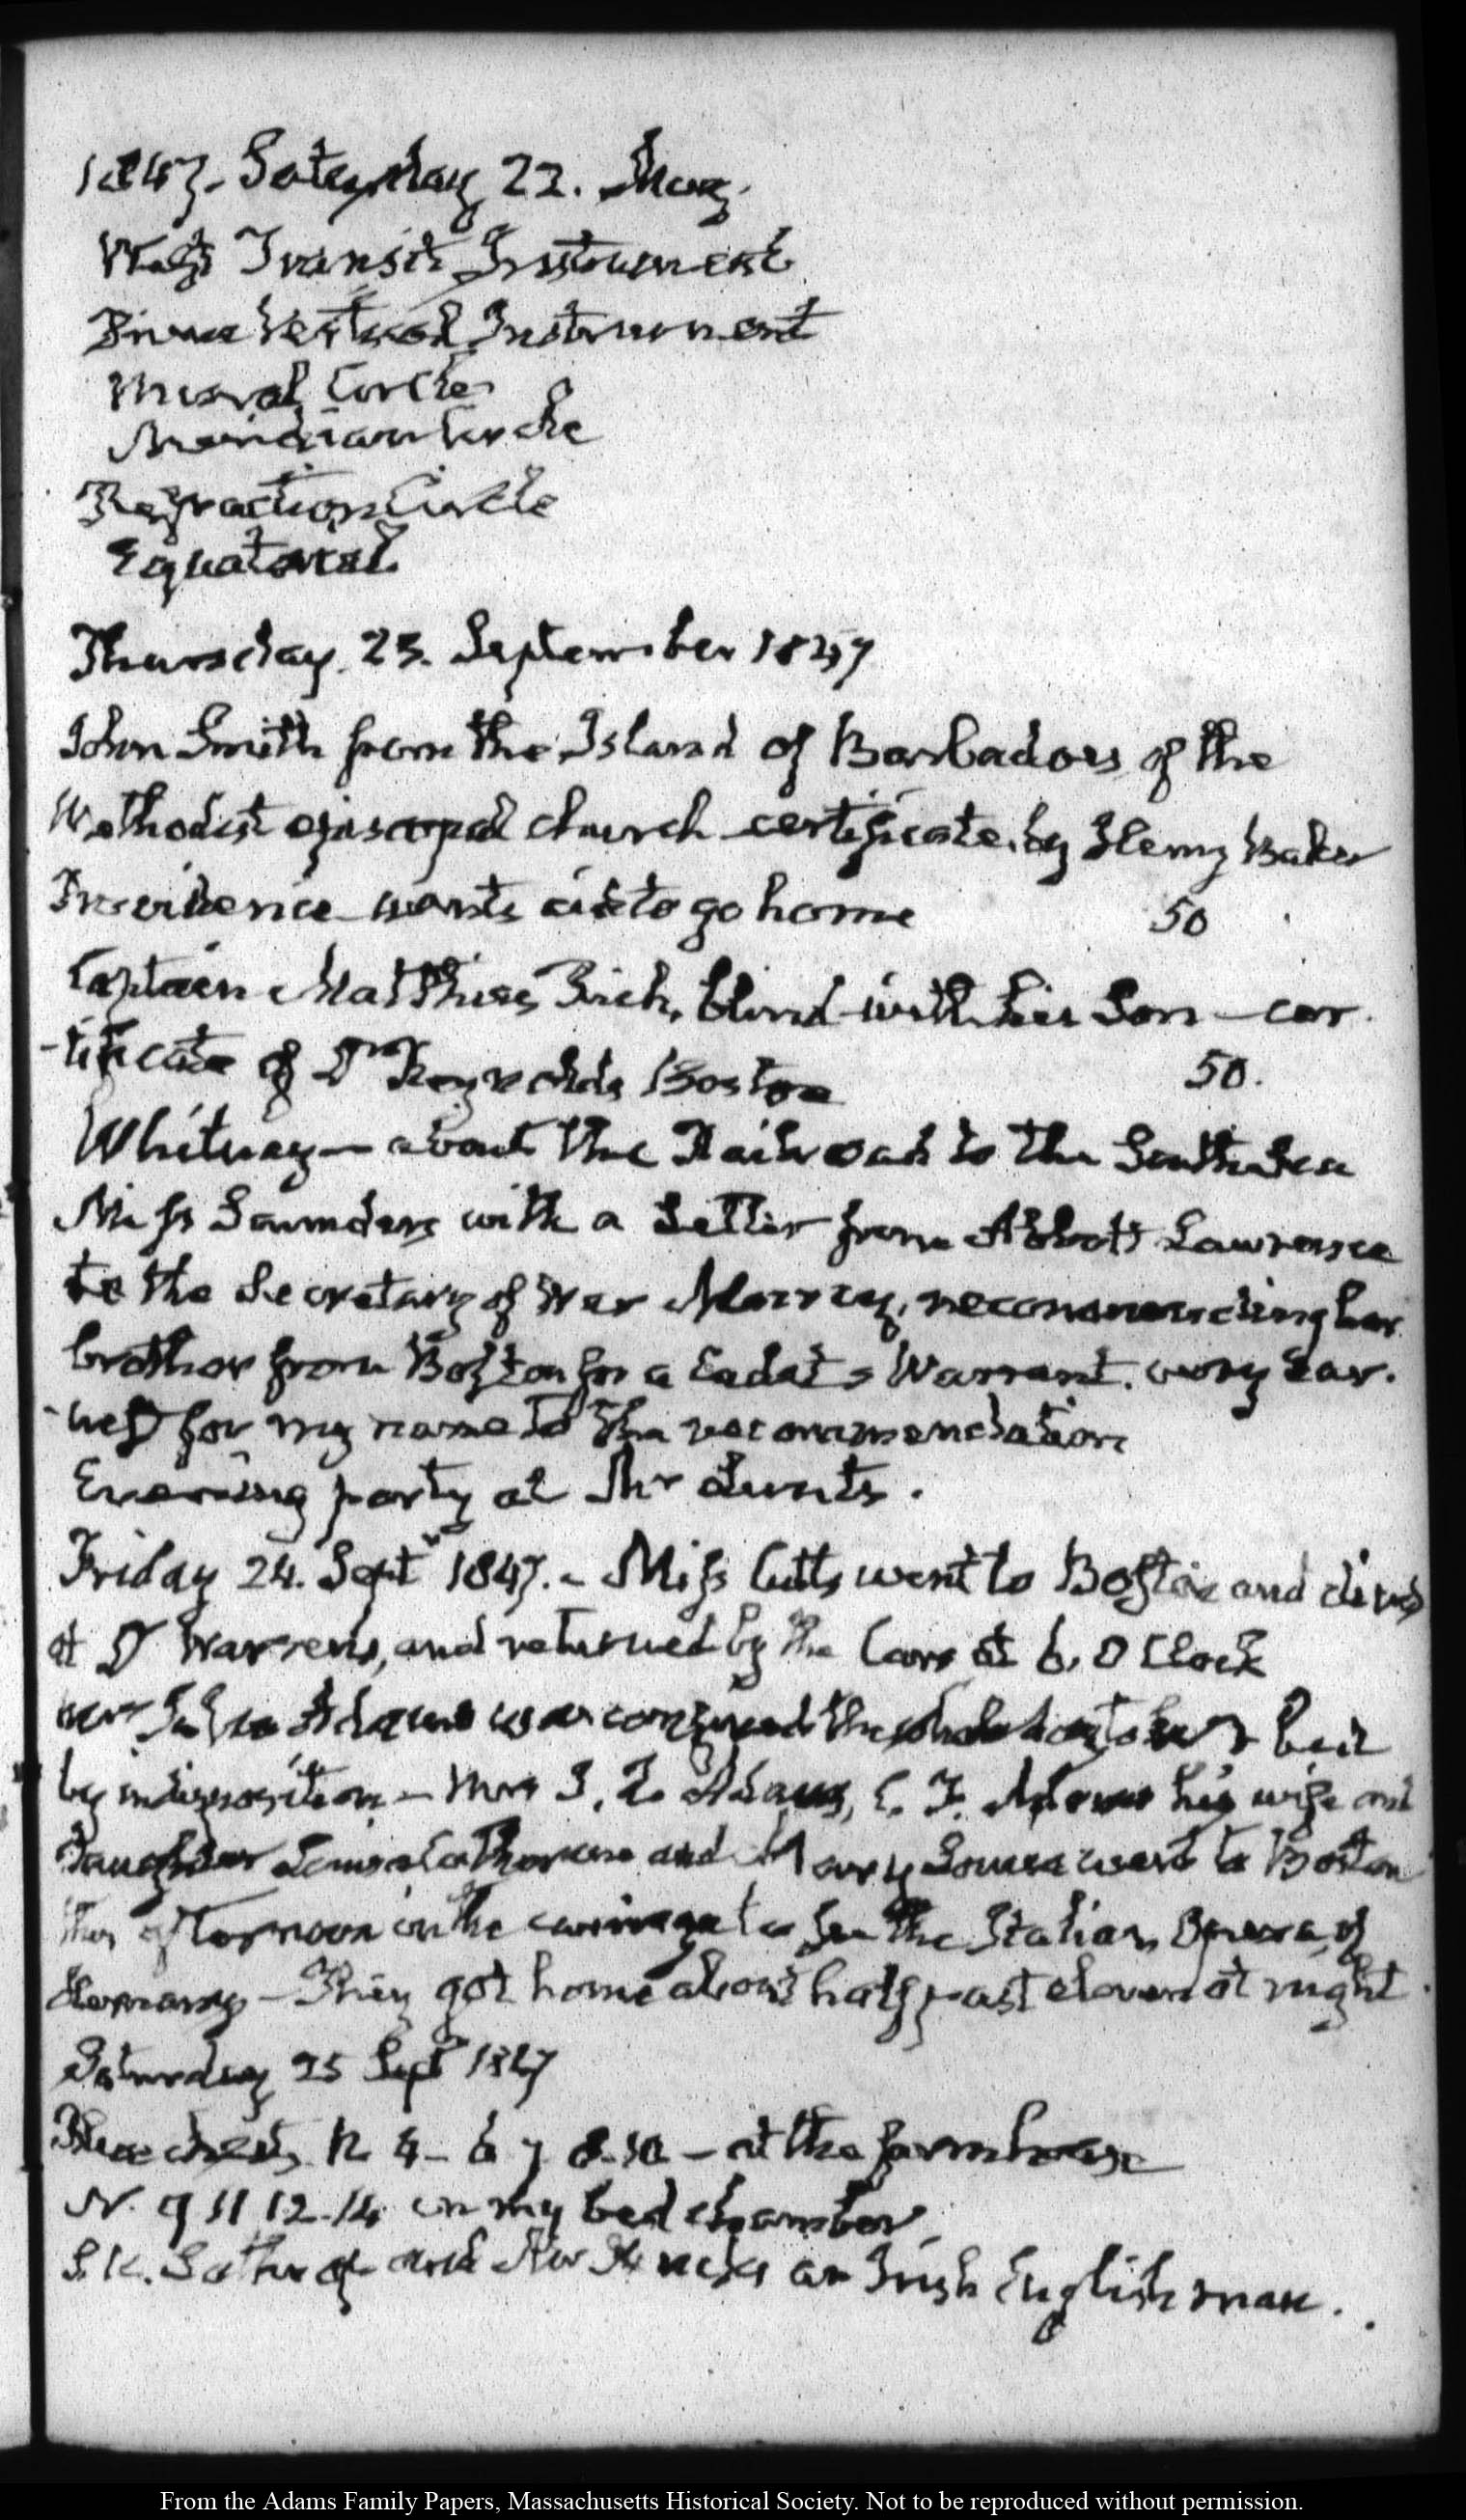 1847. Saturday 22. May.
West Transit Instrument
Prime Vertical Instrument
Mural Circle
Meridian Circle
Refraction Circle
Equatorial.
Thursday. 23. September 1847
John Smith from the Island of Barbadoes of the
Methodist episcopal church certificate by Henry Baker
Providence wants aid to go home 50
Captain Matthias Rich, blind with his Son — cer
-tificate of Dr Reynolds Boston 50.
Whitney — about the Railroad to the South Sea
Miss Saunders with a Letter from Abbott Lawrence
to the Secretary of War Marcy, recommending her
brother from Boston for a Cadet's Warrant. very ear.
-nest for my name to the recommendation
Evening party at Mr Lunt's.
Friday 24. Septr 1847. - Miss Cutts went to Boston and dined
at Dr Warren's, and returned by the Cars at 6. O Clock
Mrs John Adams was confined the whole day to her bed
by indisposition — Mrs J. Q. Adams, C. F. Adams his wife and
daughter Louisa Catherine and Mary Louisa went to Boston
this afternoon in the carriage to see the Italian Opera of
— They got home about half past eleven at night.
Saturday 25 Septr 1847
chests N 4 - 6 7 8. 10 — at the farm house
N. 9 11 12. 14 in my bed chamber,
S. K. Lothrop and Mr an Irish Englishman.
From the Adams Family Papers, Massachusetts Historical Society. Not to be reproduced without permission.